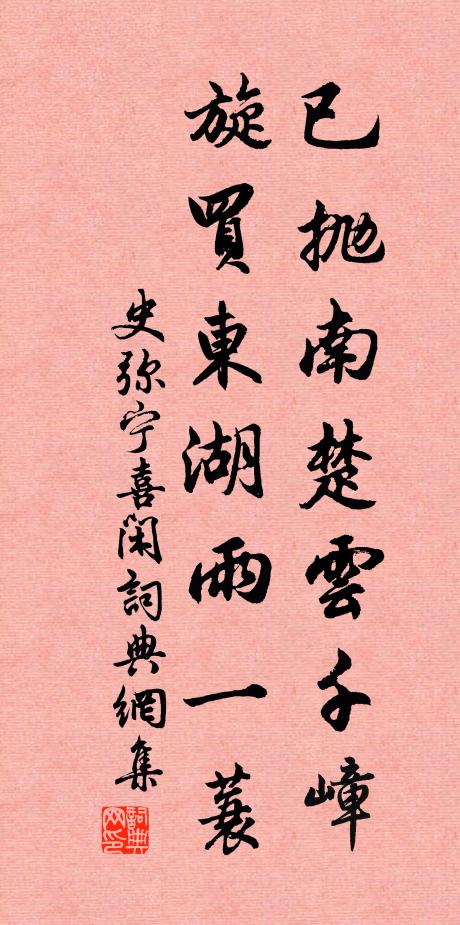 已抛南楚雲千嶂
旋買東湖雨一蓑
史弥宁喜闲詞典網集
詞典网印